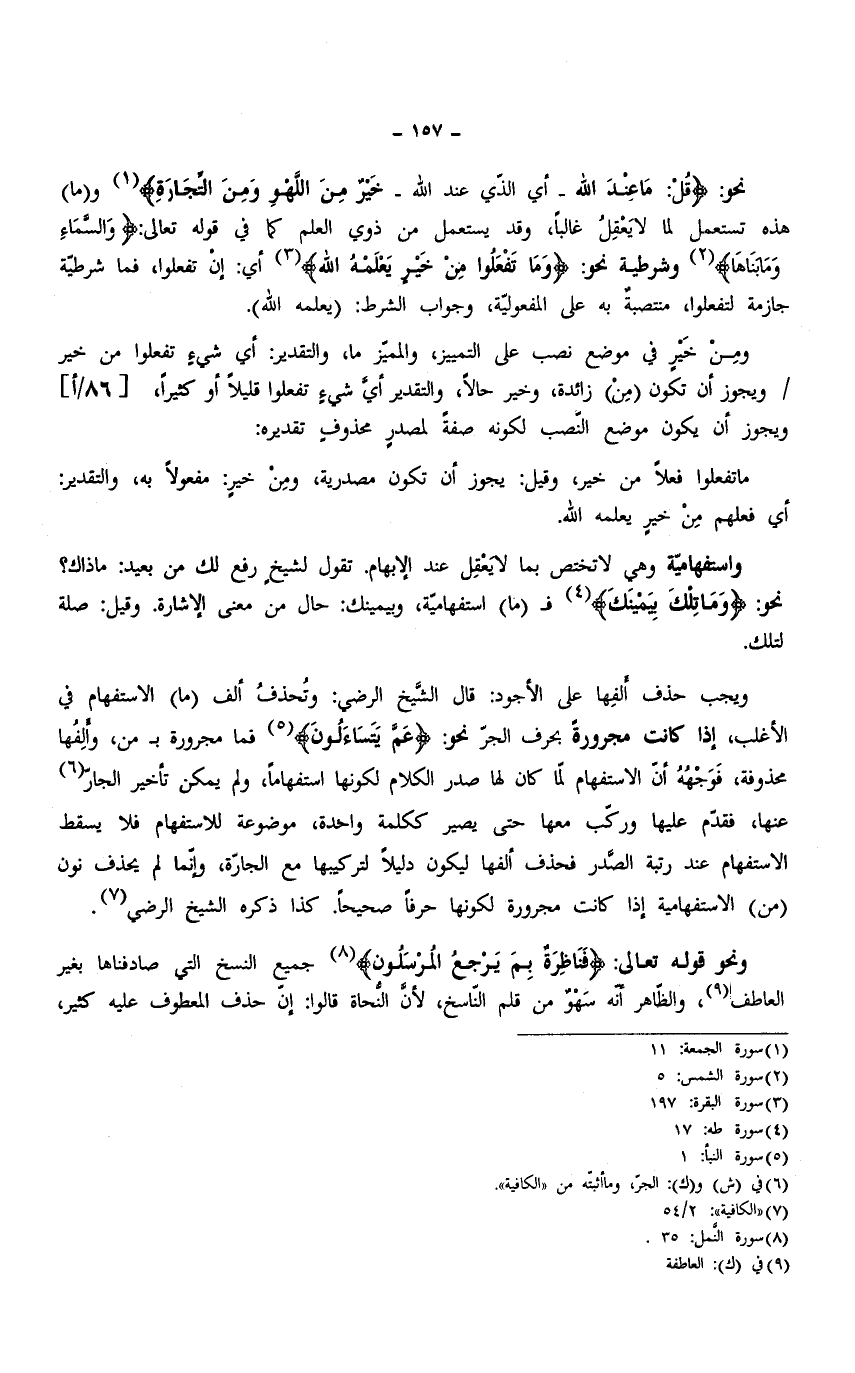 – ١٥٧ –
نحو: ﴿قُلْ: مَاعِنْدَ الله - أي الذّي عند الله - خَيْرٌ مِنَ اللَّهْوِ وَمِنَ التِّجَارَةِ﴾(١) و(ما)
هذه تستعمل لما لايَعْقِلُ غالباً، وقد يستعمل من ذوي العلم كما في قوله تعالى:﴿وَالسَّمَاءِ
وَمَابَنَاهَا﴾(٢) وشرطية نحو: ﴿وَمَا تَفْعَلُوا مِنْ خَيْرٍ يَعْلَمْهُ الله﴾(٣) أي: إنْ تفعلوا، فما شرطيّة
جازمة لتفعلوا، منتصبةٌ به على المفعوليّة، وجواب الشرط: (يعلمه الله).
ومِنْ خَيْرٍ في موضع نصب على التمييز، والمميّز ما، والتقدير: أي شيءٍ تفعلوا من خير
/ ويجوز أن تكون (مِنْ) زائدة، وخير حالاً، والتقدير أيَّ شيءٍ تفعلوا قليلاً أو كثيراً، [٨٦/أ]
ويجوز أن يكون موضع النّصب لكونه صفةً لمصدرٍ محذوفٍ تقديره:
ماتفعلوا فعلاً من خير، وقيل: يجوز أن تكون مصدرية، ومِنْ خيرٍ: مفعولاً به، والتقدير:
أي فعلهم مِنْ خيرٍ يعلمه الله.
واستفهاميّة وهي لاتختص بما لايَعْقِل عند الإبهام. تقول لشيخٍ رفع لك من بعيد: ماذاك؟
نحو: ﴿وَمَاتِلْكَ بِيَمْيِنَكَ﴾(٤) فـ (ما) استفهاميّة، وبيمينك: حال من معنى الإشارة. وقيل: صلة
لتلك.
ويجب حذف أَلفِها على الأجود: قال الشَّيخ الرضي: وتُحذفُ ألف (ما) الاستفهام في
الأغلب، إذا كانت مجرورةً بحرف الجرّ نحو: ﴿عَمَّ يَتَسَاءَلُونَ﴾(٥) فما مجرورة بـ من، وأَلِفُها
محذوفة، فَوَجْهُهُ أنّ الاستفهام لمّا كان لها صدر الكلام لكونها استفهاماً، ولم يمكن تأخير الجارّ(٦)
عنها، فقدّم عليها وركّب معها حتى يصير ككلمة واحدة، موضوعة للاستفهام فلا يسقط
الاستفهام عند رتبة الصَّدر فحذف ألفها ليكون دليلاً لتركيبها مع الجارّة، وإنّما لم يحذف نون
(من) الاستفهامية إذا كانت مجرورة لكونها حرفاً صحيحاً. كذا ذكره الشيخ الرضي(٧).
ونحو قوله تعالى: ﴿فَنَاظِرَةٌ بِمَ يَرْجعُ المُرْسَلُون﴾(٨) جميع النسخ التي صادفناها بغير
العاطف(٩)، والظّاهر أنّه سَهْوٌ من قلم النّاسخ، لأنَّ النُّحاة قالوا: إنّ حذف المعطوف عليه كثير،
(١) سورة الجمعة: ١١
(٢) سورة الشمس: ٥
(٣) سورة البقرة: ١٩٧
(٤) سورة طه: ١٧
(٥) سورة النبأ: ١
(٦) في (ش) و(ك): الجرّ، وماأثبتّه من «الكافية».
(٧) «الكافية»: ٥٤/٢
(٨) سورة النَّمل: ٣٥ .
(٩) في (ك): العاطفة